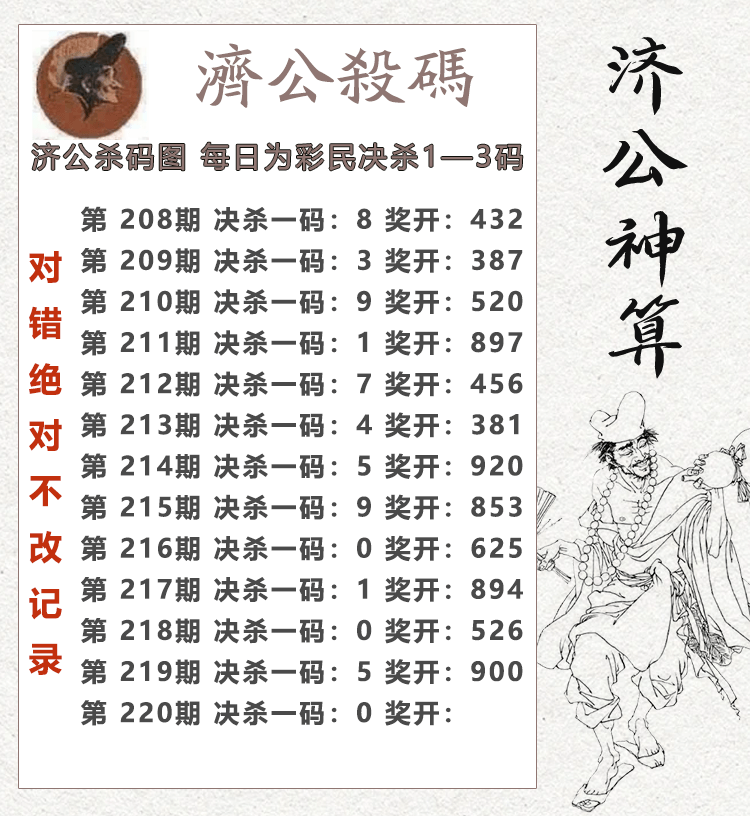 濟公殺碼
济公杀码图 每日为彩民决杀1—3码
第 208期 决杀一码：8 奖开：432
第 209期 决杀一码：3 奖开：387
第 210期 决杀一码：9 奖开：520
第 211期 决杀一码：1 奖开：897
第 212期 决杀一码：7 奖开：456
第 213期 决杀一码：4 奖开：381
第 214期 决杀一码：5 奖开：920
第 215期 决杀一码：9 奖开：853
第 216期 决杀一码：0 奖开：625
第 217期 决杀一码：1 奖开：894
第 218期 决杀一码：0 奖开：526
第 219期 决杀一码：5 奖开：900
第 220期 决杀一码：0 奖开：
对错绝对不改记录
济公神算